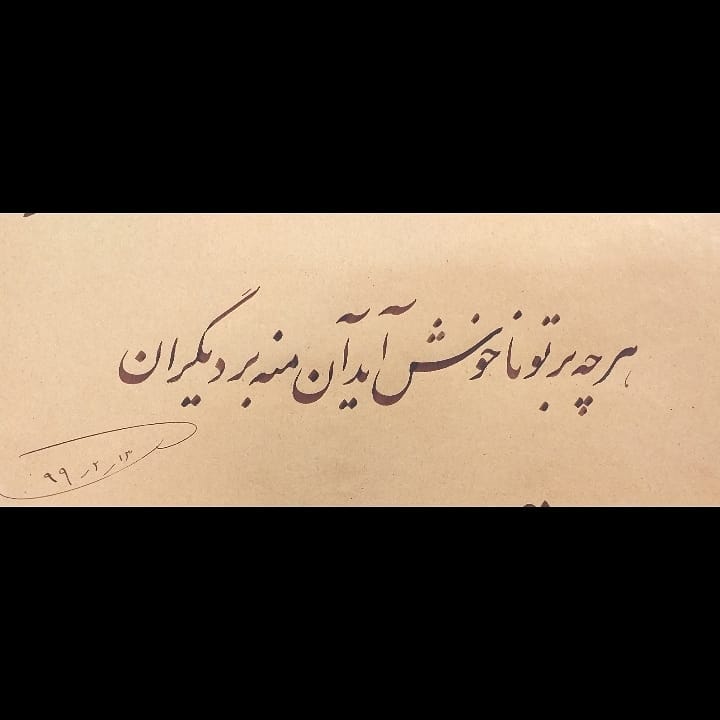 هر چه بر تو ناخوش آید آن منه بر دیگران
۹۹٫۲٫۱۳